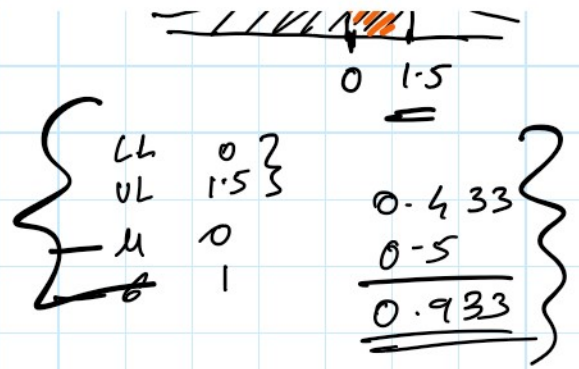 0 1.5
LL 0
UL 1.5
μ 0
σ 1
0.433
0.5
0.933